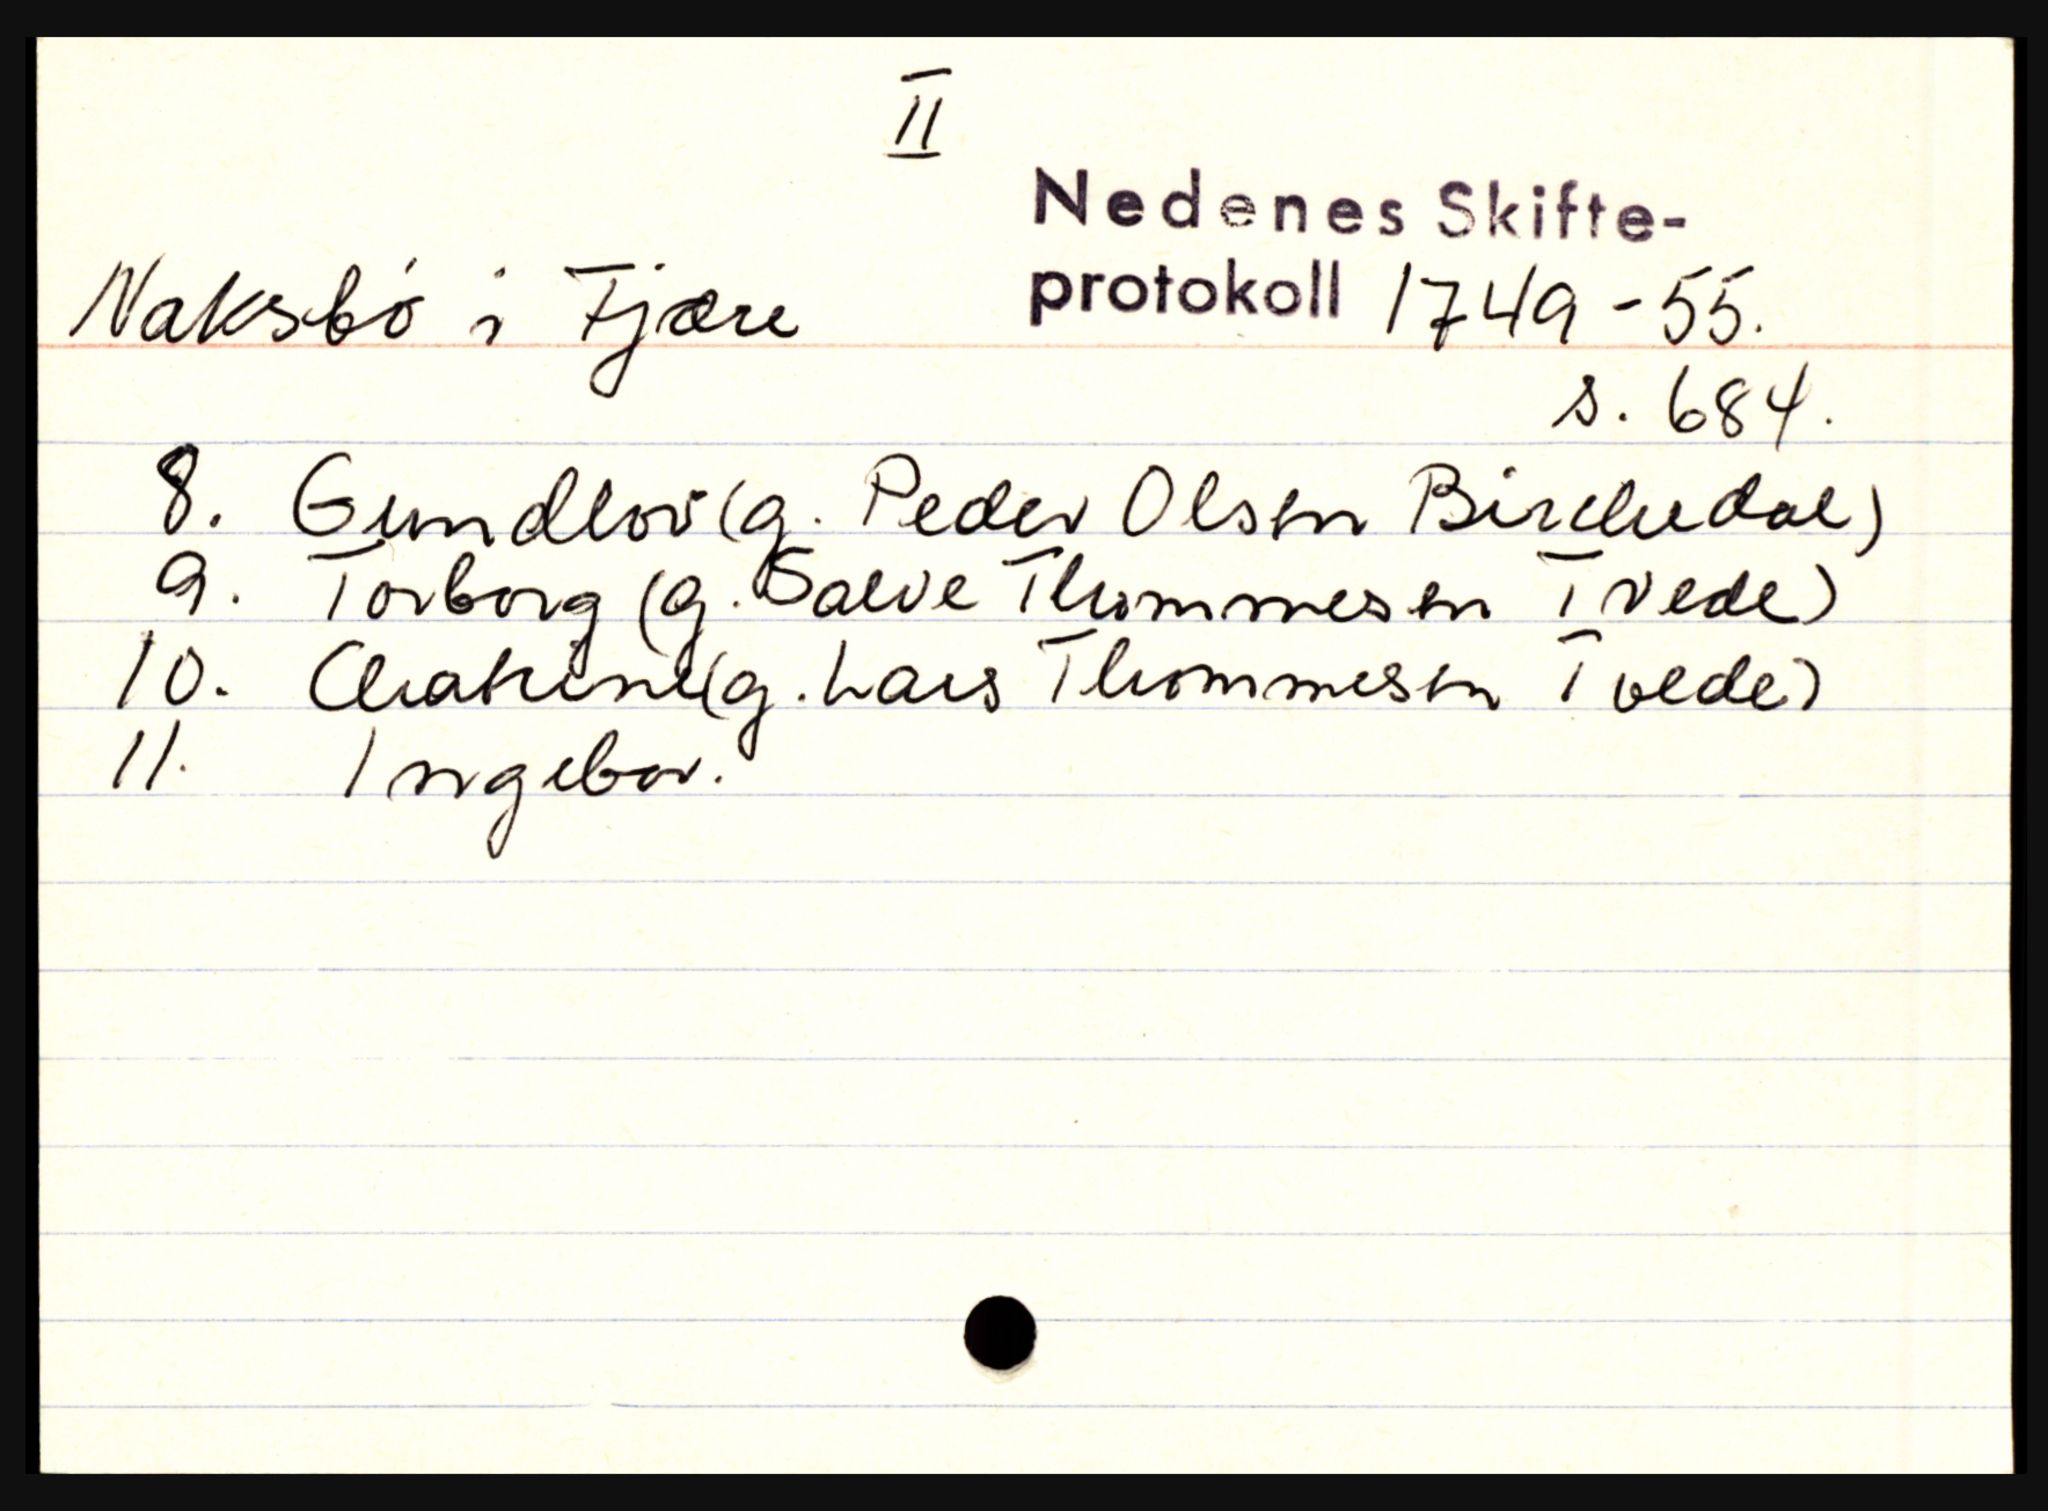 II
Nedenes Skifte-
Naksbø i Fjære protokoll 1749-55.
s. 684.
8. Gundlov (g. Peder Olsen Birchedal)
9. Torborg (g. Salve Thommesen Tvede)
10. (g. Lars Thommesen Tvede)
11. Ingebor.